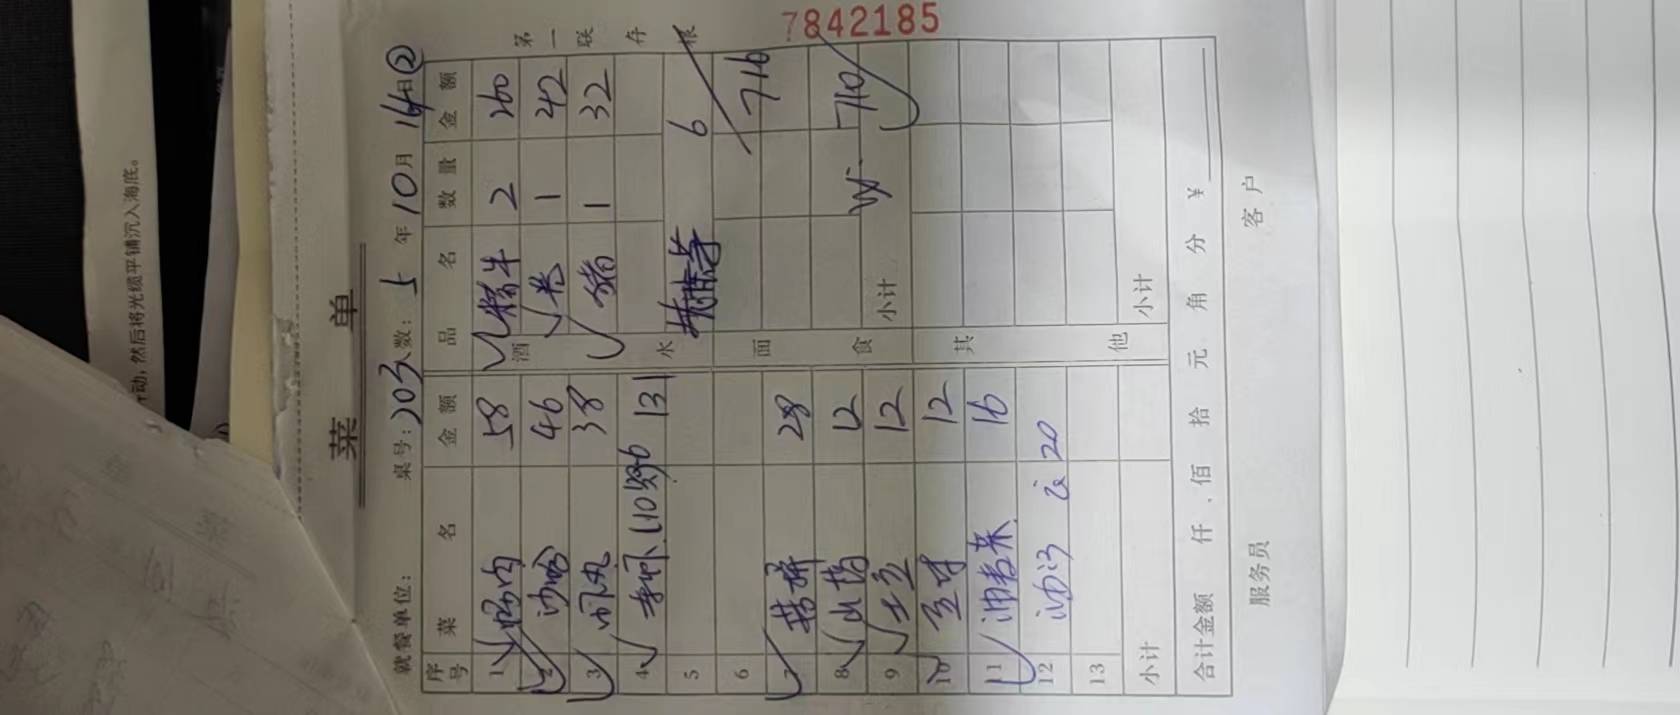 动，然后将光缆平铺沉入海底。
菜 单
7842185
第一联 存根
就餐单位： 桌号：203 人数：5 年 10月 14日②
序号 菜名 金额 品名 数量 金额
1 肠肉 58 精牛 2 260
2 沙哈 46 羔 1 242
3 虾丸 38 猪 1 32
4 131
酒水
5 6
6 716
面食
28
8 山指 12 710
9 土豆 12 小计
10 豆芽 12
11 油麦菜 16
12 油汤 20
其他
13
小计 小计
合计金额 仟 佰 拾 元 角 分 ¥
服务员 客户